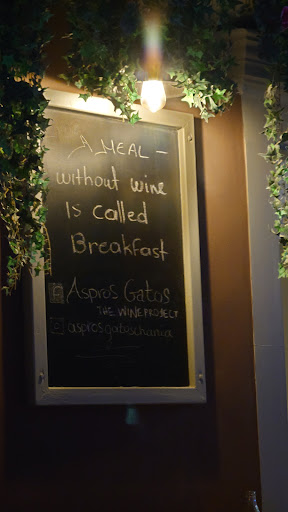 A MEAL -
without wine
Is called
Breakfast
Aspros Gatos
THE WINE PROJECT
asprosgatoschania